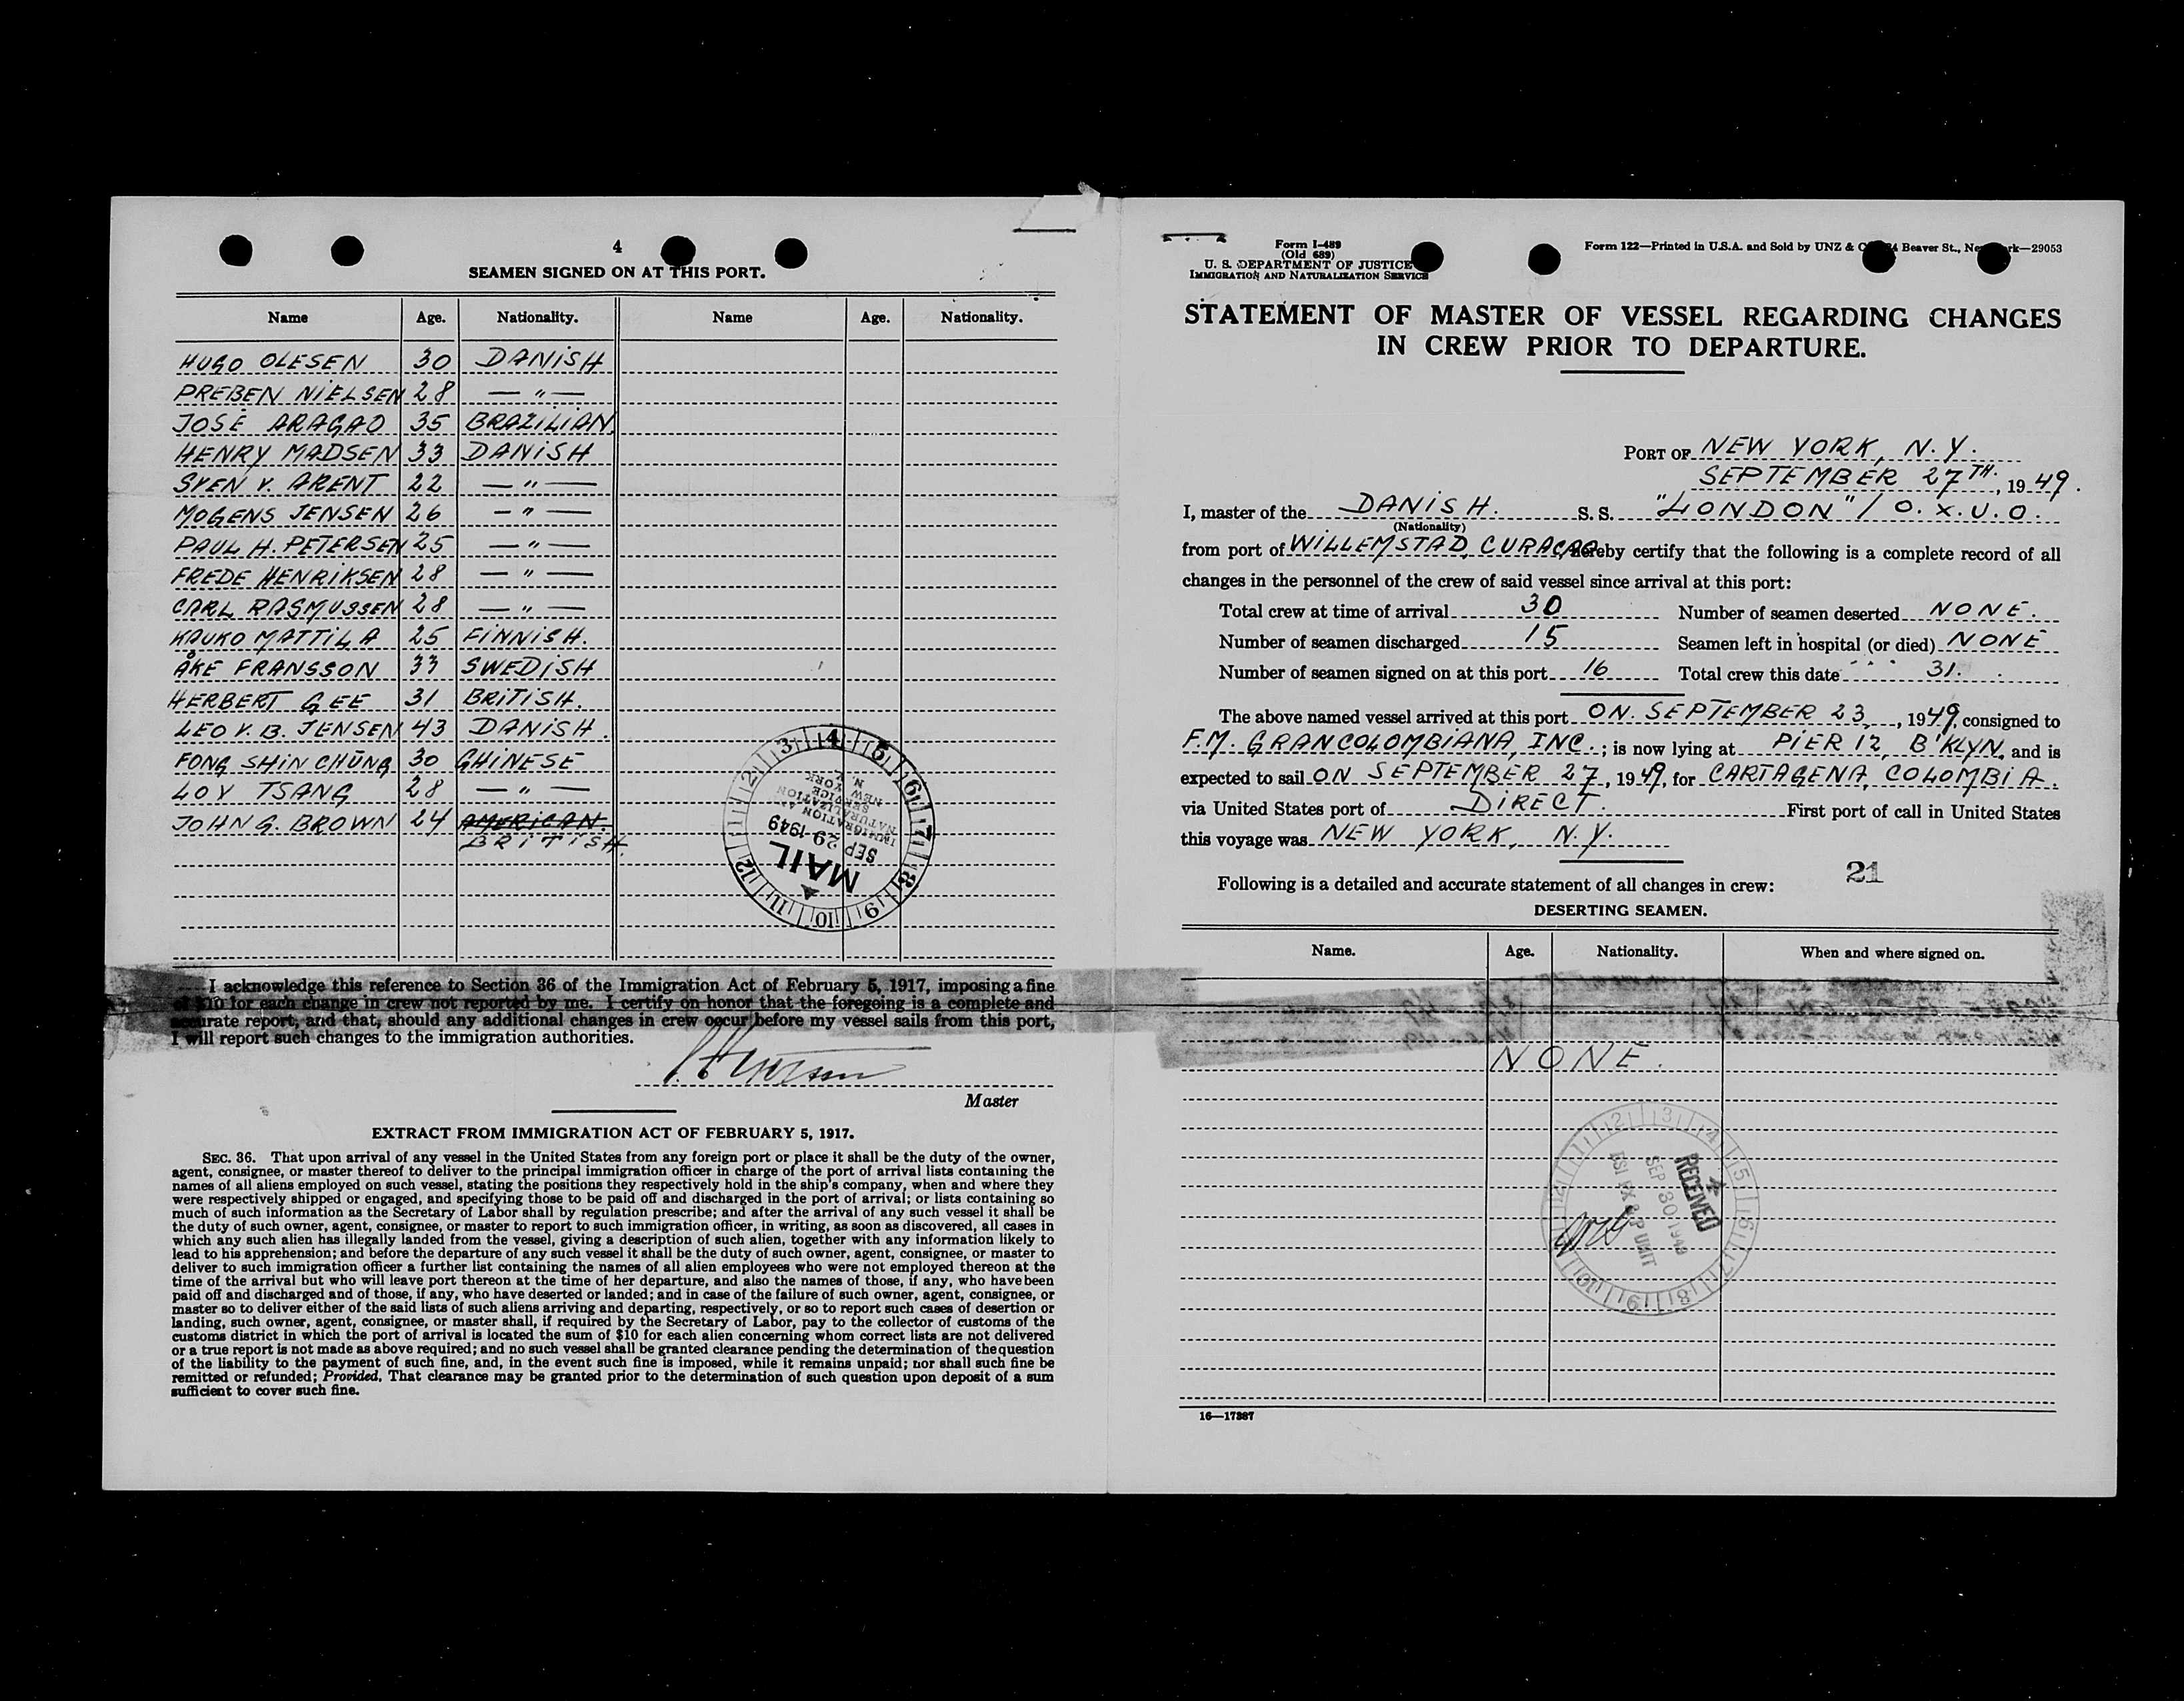 4
SEAMEN SIGNED ON AT THIS PORT.
Name Age. Nationality. Name Age. Nationality.
HUGO OLESEN 30 DANISH
PREBEN NIELSEN 28 — " —
JOSÉ ARAGAO 35 BRAZILIAN.
HENRY MADSEN 33 DANISH
SVEN V. ARENT 22 — " —
MOGENS JENSEN 26 — " —
PAUL H. PETERSEN 25 — " —
FREDE HENRIKSEN 28 — " —
CARL RASMUSSEN 28 — " —
KAUKO MATTILA 25 FINNISH.
ÅKE FRANSSON 33 SWEDISH
HERBERT GEE 31 BRITISH.
LEO V. B. JENSEN 43 DANISH.
FONG SHIN CHŪNG 30 CHINESE
LOY TSANG 28 — " —
JOHN G. BROWN 24 AMERICAN.
BRITISH.
IMMIGRATION AND NATURALIZATION SERVICE NEW YORK N. Y.
SEP 29 1949
MAIL
1 2 3 4 5 6 7 8 9 10 11 12
I acknowledge this reference to Section 36 of the Immigration Act of February 5, 1917, imposing a fine
of $10 for each change in crew not reported by me. I certify on honor that the foregoing is a complete and
accurate report, and that, should any additional changes in crew occur before my vessel sails from this port,
I will report such changes to the immigration authorities.
Master
EXTRACT FROM IMMIGRATION ACT OF FEBRUARY 5, 1917.
SEC. 36. That upon arrival of any vessel in the United States from any foreign port or place it shall be the duty of the owner,
agent, consignee, or master thereof to deliver to the principal immigration officer in charge of the port of arrival lists containing the
names of all aliens employed on such vessel, stating the positions they respectively hold in the ship's company, when and where they
were respectively shipped or engaged, and specifying those to be paid off and discharged in the port of arrival; or lists containing so
much of such information as the Secretary of Labor shall by regulation prescribe; and after the arrival of any such vessel it shall be
the duty of such owner, agent, consignee, or master to report to such immigration officer, in writing, as soon as discovered, all cases in
which any such alien has illegally landed from the vessel, giving a description of such alien, together with any information likely to
lead to his apprehension; and before the departure of any such vessel it shall be the duty of such owner, agent, consignee, or master to
deliver to such immigration officer a further list containing the names of all alien employees who were not employed thereon at the
time of the arrival but who will leave port thereon at the time of her departure, and also the names of those, if any, who have been
paid off and discharged and of those, if any, who have deserted or landed; and in case of the failure of such owner, agent, consignee, or
master so to deliver either of the said lists of such aliens arriving and departing, respectively, or so to report such cases of desertion or
landing, such owner, agent, consignee, or master shall, if required by the Secretary of Labor, pay to the collector of customs of the
customs district in which the port of arrival is located the sum of $10 for each alien concerning whom correct lists are not delivered
or a true report is not made as above required; and no such vessel shall be granted clearance pending the determination of the question
of the liability to the payment of such fine, and, in the event such fine is imposed, while it remains unpaid; nor shall such fine be
remitted or refunded; Provided, That clearance may be granted prior to the determination of such question upon deposit of a sum
sufficient to cover such fine.
Form I-489
(Old 689)
U. S. DEPARTMENT OF JUSTICE
IMMIGRATION AND NATURALIZATION SERVICE
Form 122—Printed in U.S.A. and Sold by UNZ & Beaver St., —29053
STATEMENT OF MASTER OF VESSEL REGARDING CHANGES
IN CREW PRIOR TO DEPARTURE.
PORT OF NEW YORK, N.Y.
SEPTEMBER 27TH., 1949.
I, master of the DANISH. S. S. "LONDON" / O.X.U.O.
(Nationality)
from port of WILLEMSTAD, CURACAO hereby certify that the following is a complete record of all
changes in the personnel of the crew of said vessel since arrival at this port:
Total crew at time of arrival 30 Number of seamen deserted NONE.
Number of seamen discharged 15 Seamen left in hospital (or died) NONE
Number of seamen signed on at this port 16 Total crew this date 31.
The above named vessel arrived at this port ON. SEPTEMBER 23, 1949, consigned to
F.M. GRANCOLOMBIANA, INC.; is now lying at PIER 12, B'KLYN. and is
expected to sail ON SEPTEMBER 27, 1949, for CARTAGENA, COLOMBIA.
via United States port of DIRECT. First port of call in United States
this voyage was NEW YORK, N.Y.
21
Following is a detailed and accurate statement of all changes in crew:
DESERTING SEAMEN.
Name. Age. Nationality. When and where signed on.
NONE.
RECEIVED
SEP 30 1949
UNIT
16—17387